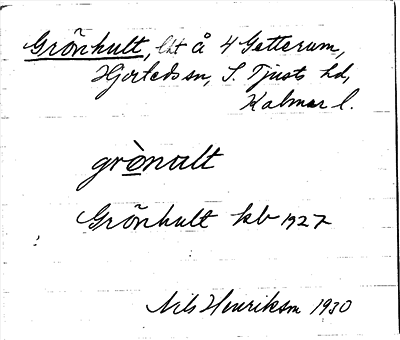 Grönhult, lht å 4 Getterum,
Hjorteds sn, S. Tjusts hd,
Kalmar l.
grònult
Grönhult kb 1927
Nils Henrikson 1930